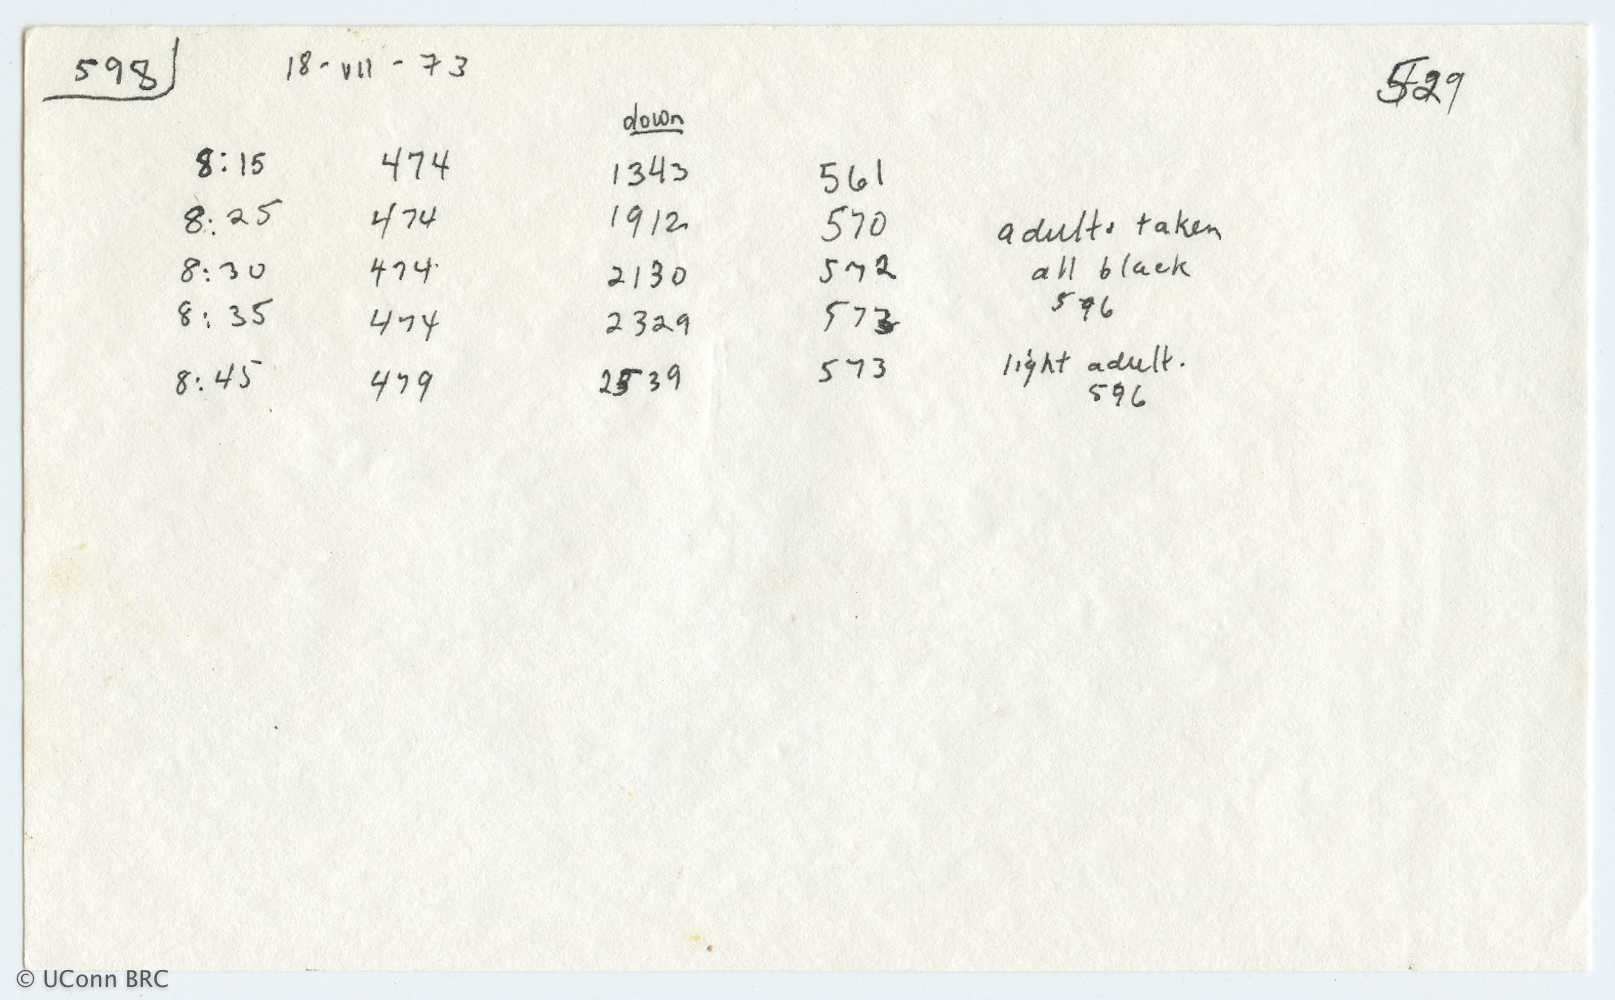 598 18-VII-73 529
down
8:15 474 1343 561
8:25 474 1912 570 adults taken
8:30 474 2130 572 all black
596
8:35 474 2329 573
8:45 479 2539 573 light adult.
596
© UConn BRC